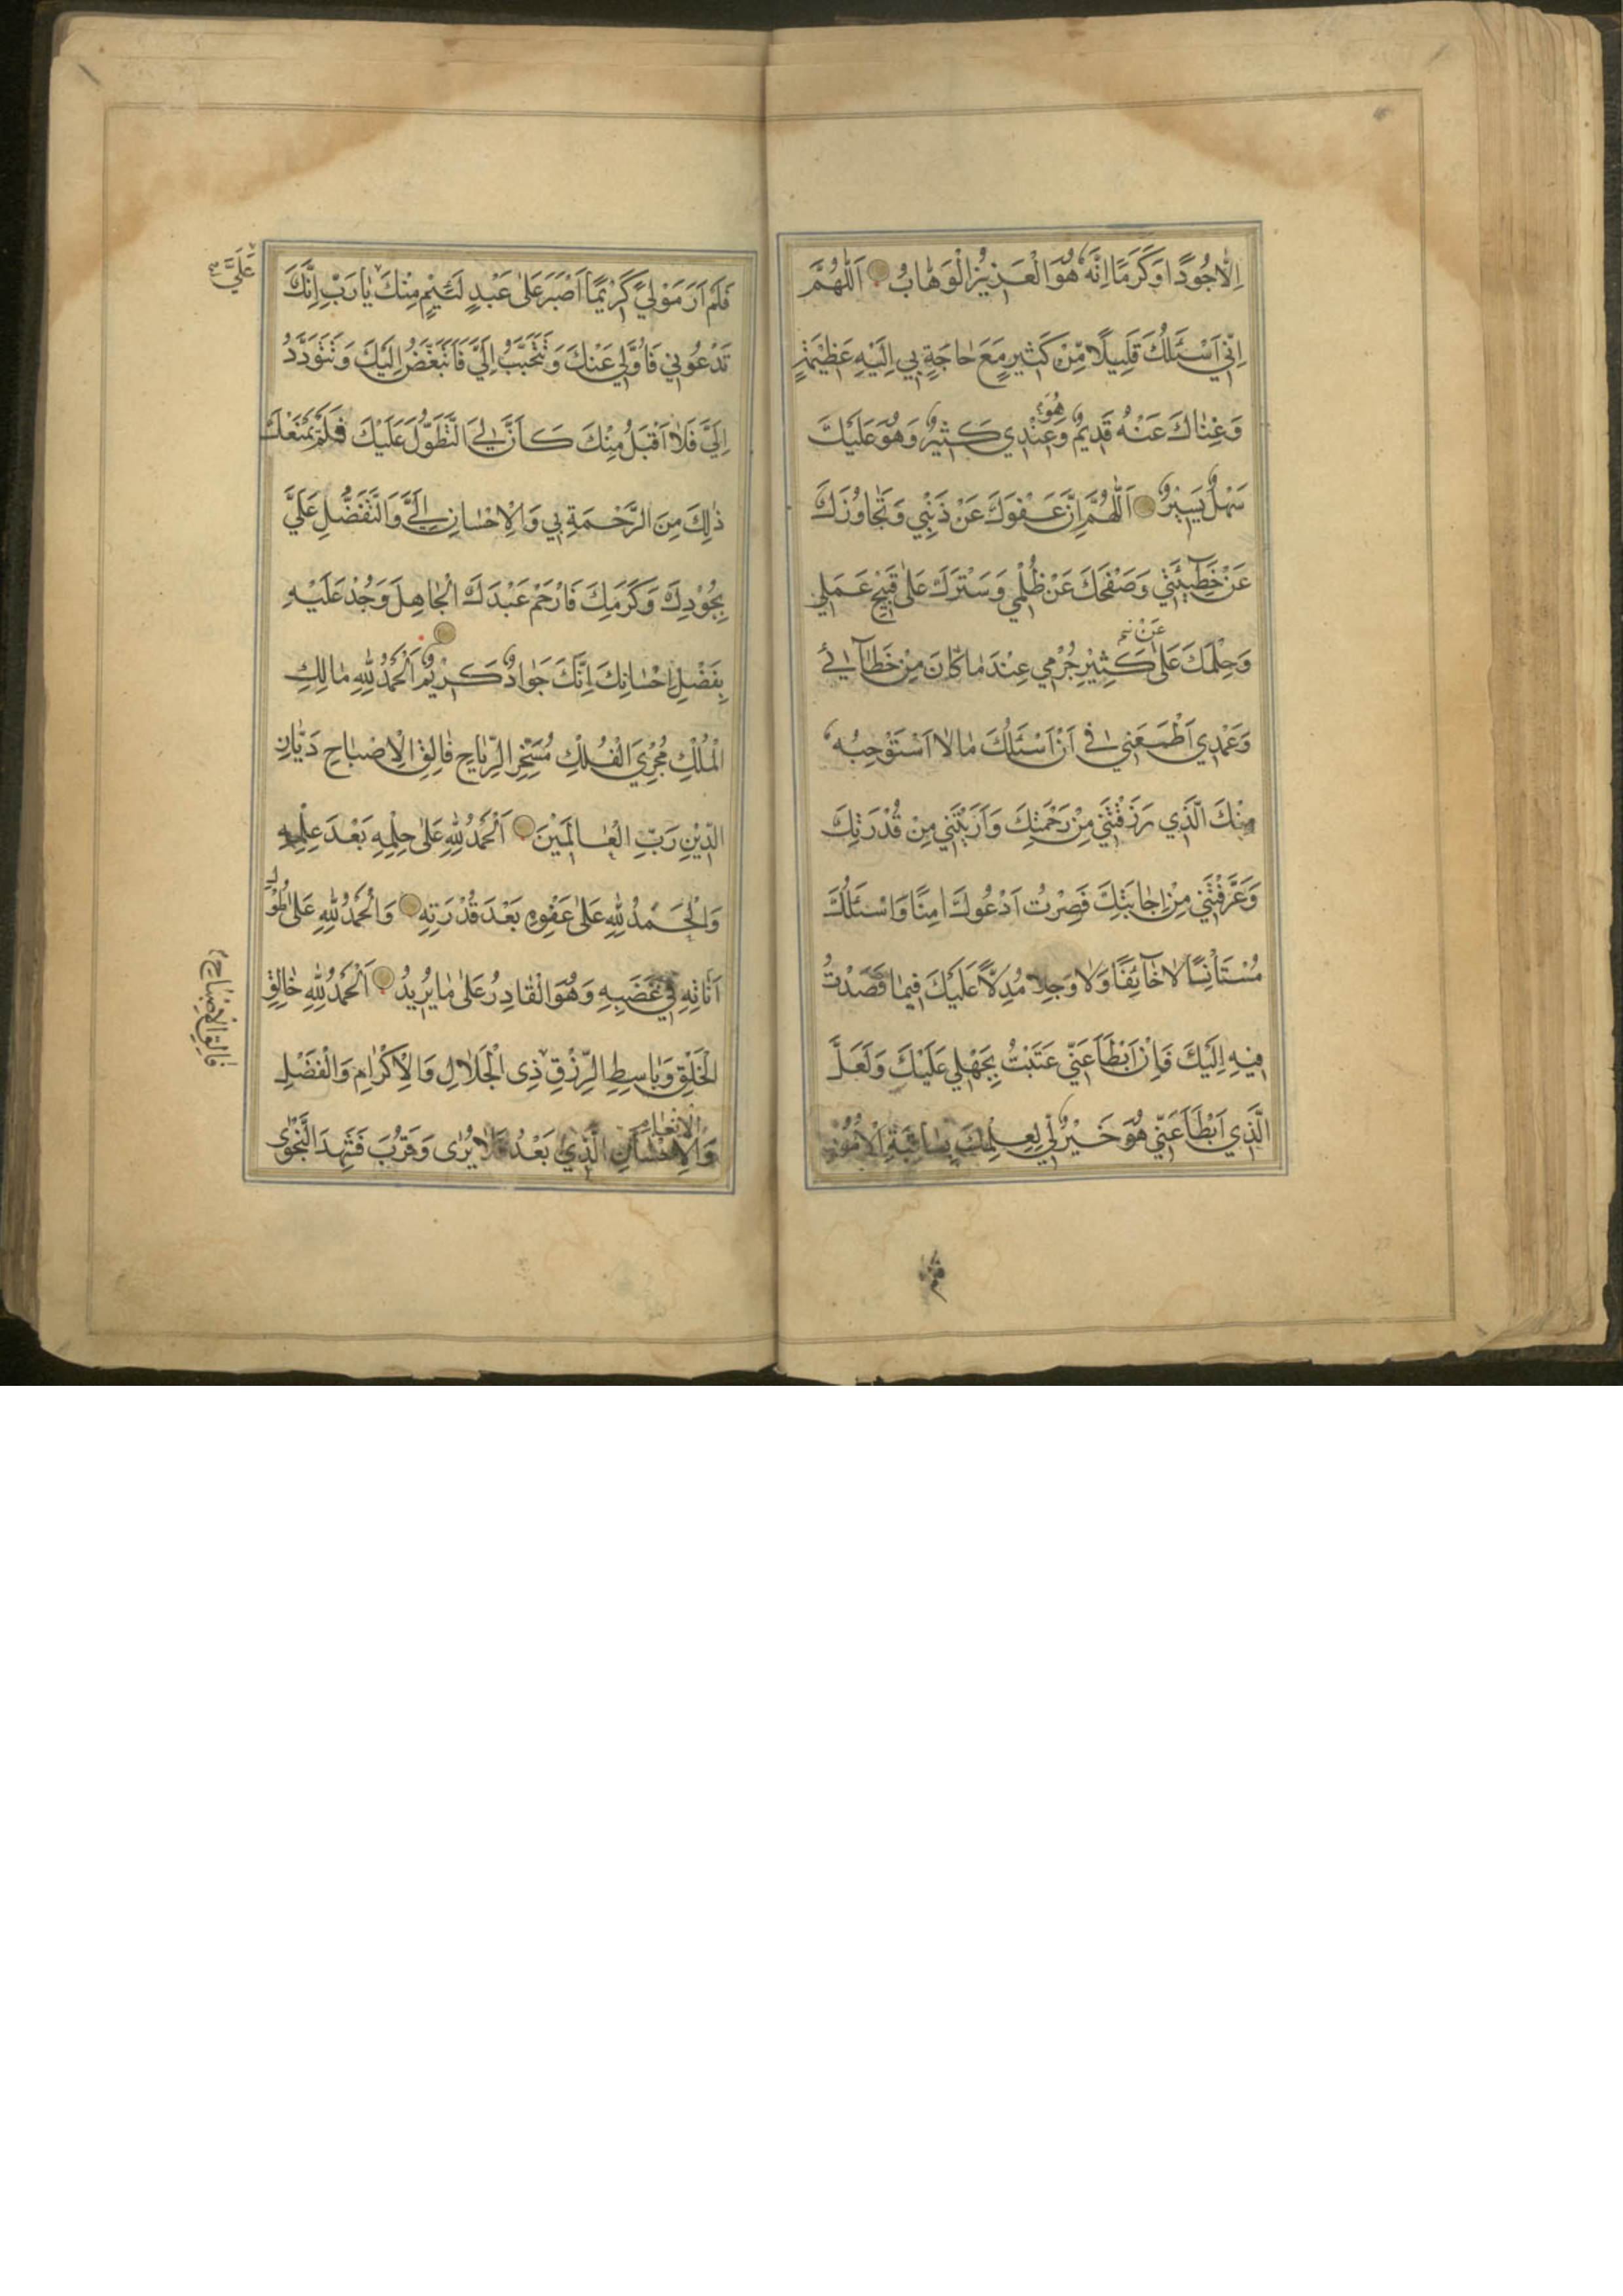 اِلّاٰ جُودًا وَكَرَمًا اِنَّهُ هُوَ الْعَزِيزُ الْوَهّٰابُ اَللّٰهُمَّ
اِنّي اَسْئَلُكَ قَلِيلًا مِنْ كَثيرٍ مَعَ حٰاجَةٍ بي اِلَيْهِ عَظيمَةٍ
وَغِنٰاكَ عَنْهُ قَديمٌ وَ هُوَ عِنْدي كَثيرٌ وَهُوَ عَلَيْكَ
سَهْلٌ يَسيرٌ اَللّٰهُمَّ اِنَّ عَفْوَكَ عَنْ ذَنْبي وَتَجٰاوُزَكَ
عَنْ خَطيۤئَتي وَصَفْحَكَ عَنْ ظُلْمي وَسَتْرَكَ عَلٰى قَبيحِ عَمَلي
عَنْ
وَحِلْمَكَ عَلٰى كَثيرِ جُرْمي عِنْدَ مٰا كٰانَ مِنْ خَطٰآئي
وَعَمْدي اَطْمَعَني في اَنْ اَسْئَلَكَ مٰا لاٰ اَسْتَوْجِبُهُ
مِنْكَ الَّذي رَزَقْتَني مِنْ رَحْمَتِكَ وَاَرَيْتَني مِنْ قُدْرَتِكَ
وَعَرَّفْتَني مِنْ اِجٰابَتِكَ فَصِرْتُ اَدْعُوكَ اٰمِنًا وَاَسْئَلُكَ
مُسْتَأْنِسًا لاٰ خٰآئِفًا وَلاٰ وَجِلًا مُدِلًّا عَلَيْكَ فيمٰا قَصَدْتُ
فيهِ اِلَيْكَ فَاِنْ اَبْطَاَ عَنّي عَتَبْتُ بِجَهْلي عَلَيْكَ وَلَعَلَّ
الَّذي اَبْطَاَ عَنّي هُوَ خَيْرٌ لي لِعِلْمِكَ بِعٰاقِبَةِ الْاُمُورِ
عَلَيَّ
فَلَمْ اَرَ مَوْلًي كَريمًا اَصْبَرَ عَلٰى عَبْدٍ لَئيمٍ مِنْكَ يٰا رَبِّ اِنَّكَ
تَدْعُوني فَاُوَلّي عَنْكَ وَتَتَحَبَّبُ اِلَيَّ فَاَتَبَغَّضُ اِلَيْكَ وَتَتَوَدَّدُ
اِلَيَّ فَلاٰ اَقْبَلُ مِنْكَ كَاَنَّ لِيَ التَّطَوُّلَ عَلَيْكَ فَلَمْ يَمْنَعْكَ
ذٰلِكَ مِنَ الرَّحْمَةِ بي وَالْاِحْسٰانِ اِلَيَّ وَالتَّفَضُّلِ عَلَيَّ
بِجُوْدِكَ وَكَرَمِكَ فَارْحَمْ عَبْدَكَ الْجٰاهِلَ وَجُدْ عَلَيْهِ
بِفَضْلِ اِحْسٰانِكَ اِنَّكَ جَوٰادٌ كَريمٌ اَلْحَمْدُ لِلّٰهِ مٰالِكِ
الْمُلْكِ مُجْرِي الْفُلْكِ مُسَخِّرِ الرِّيٰاحِ فٰالِقِ الْاِصْبٰاحِ دَيّٰانِ
الدّينِ رَبِّ الْعٰالَمينَ اَلْحَمْدُ لِلّٰهِ عَلٰى حِلْمِهِ بَعْدَ عِلْمِهِ
وَالْحَمْدُ لِلّٰهِ عَلٰى عَفْوِهِ بَعْدَ قُدْرَتِهِ وَالْحَمْدُ لِلّٰهِ عَلٰى طُوْلِ
اَنٰاتِهِ في غَضَبِهِ وَهُوَ الْقٰادِرُ عَلٰى مٰا يُريدُ اَلْحَمْدُ لِلّٰهِ خٰالِقِ
فٰالِقِ الْاِصْبٰاحِ
الْخَلْقِ وَبٰاسِطِ الرِّزْقِ ذِى الْجَلاٰلِ وَالْاِكْرٰامِ وَالْفَضْلِ
وَالْاِحْسٰانِ الَّذي بَعُدَ فَلاٰ يُرٰى وَقَرُبَ فَشَهِدَ النَّجْوٰى